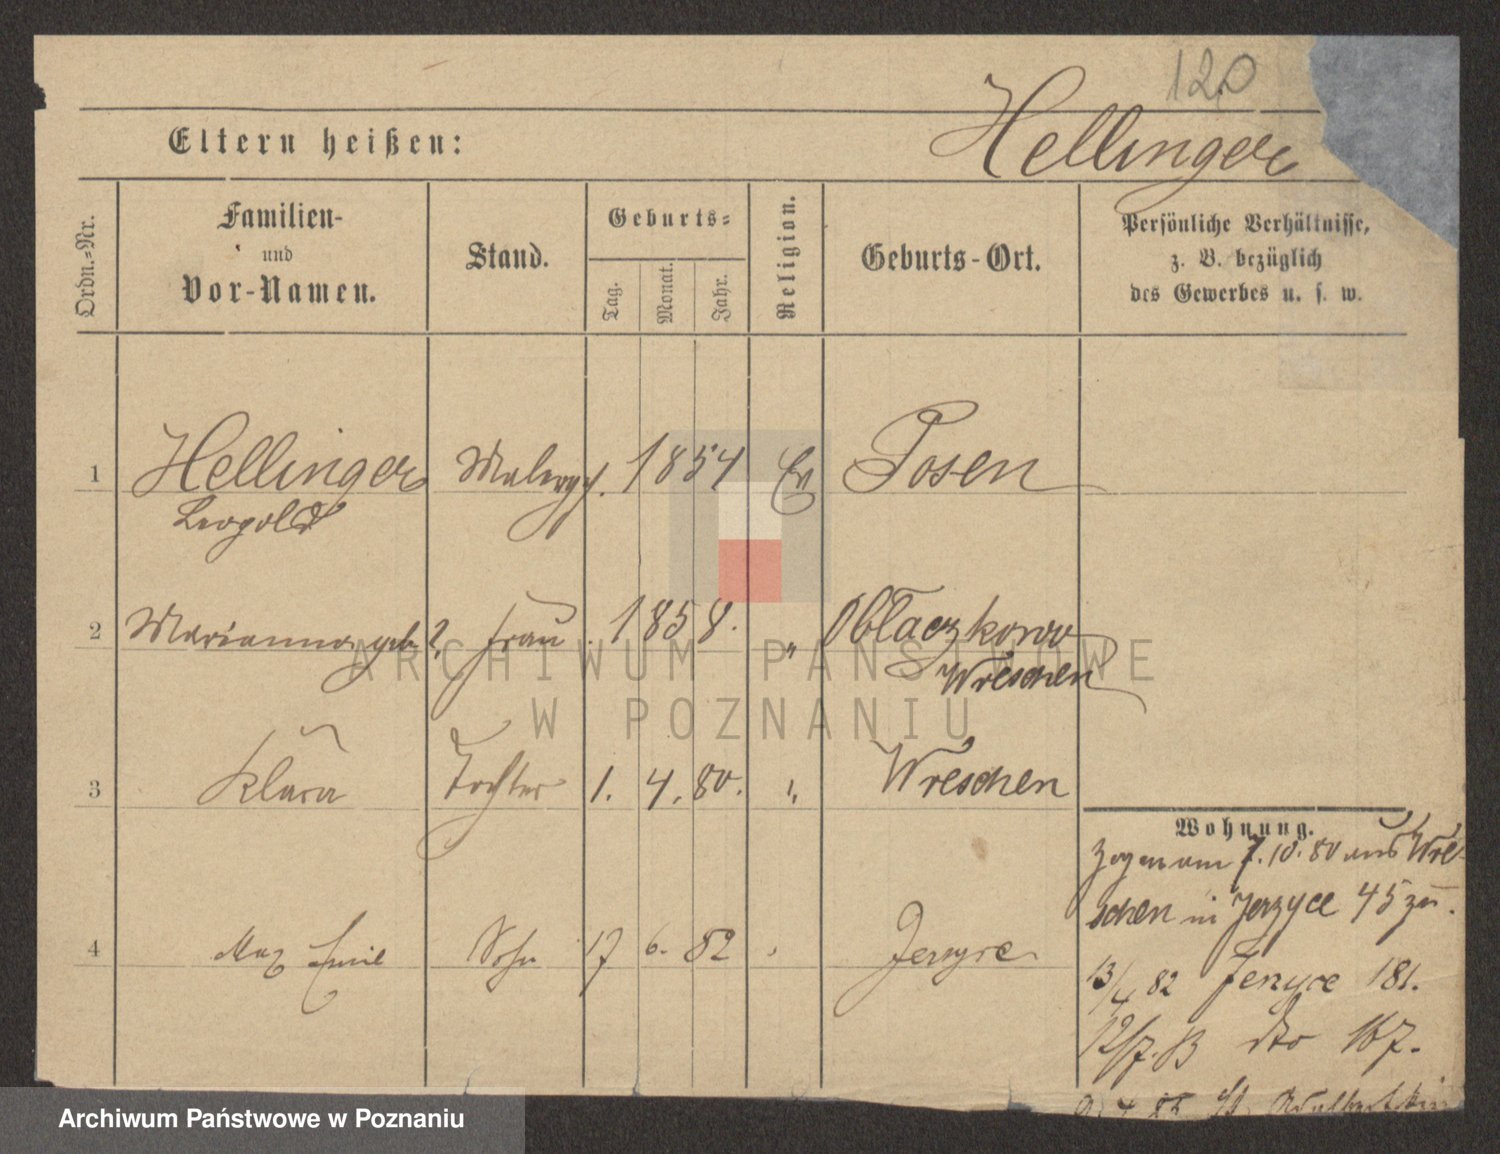 120
Eltern heißen:
Hellinger
Ordn.-Nr.
Familien-
und
Vor-Namen.
Stand.
Geburts-
Tag.
Monat.
Jahr.
Religion.
Geburts-Ort.
Persönliche Verhältnisse,
z. B. bezüglich
des Gewerbes u. s. w.
1 Hellinger Malerg. 1854 Ev Posen
Leopold
2 Marianna geb. ? Frau 1858. " Obłaczkowo
Wreschen
3 Klara Tochter 1. 4. 80. " Wreschen
Wohnung.
Zogen am 7.10.80 aus Wre-
schen in Jerzyce 45 zu.
4 Max Emil Sohn 17 6. 82 Jerzyce
13/4 82 Jerzyce 181.
12/7. 83 dto 167.
4 85 St.
ARCHIWUM PAŃSTWOWE
W POZNANIU
Archiwum Państwowe w Poznaniu